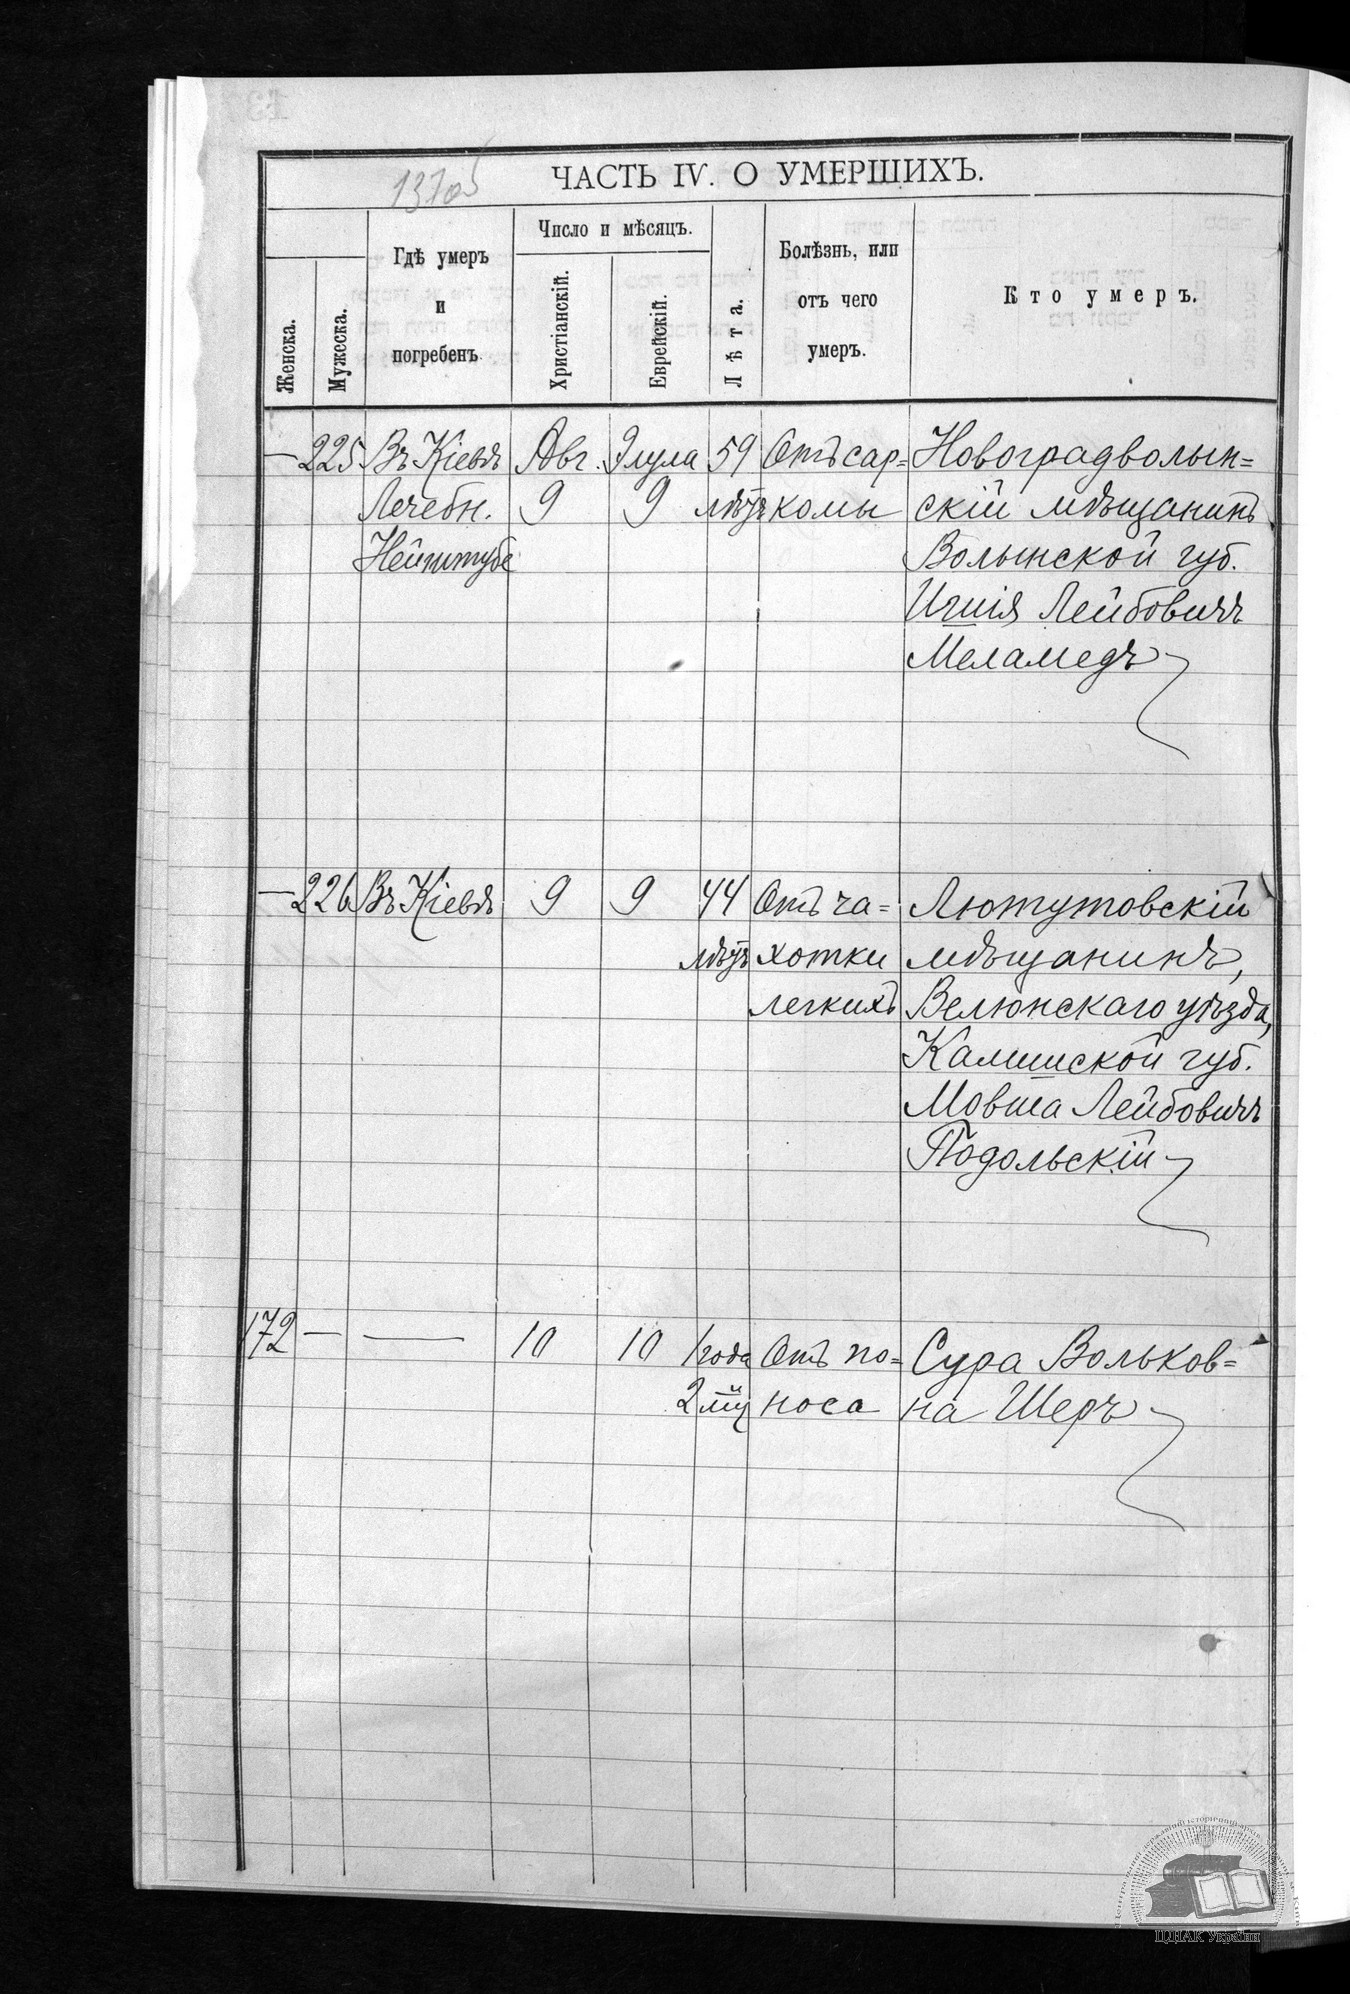 137об
ЧАСТЬ IV. О УМЕРШИХЪ.
Женска.
Мужеска.
Гдѣ умеръ
и
погребенъ
Число и мѣсяцъ.
Христіанскій.
Еврейскій.
Лѣта.
Болѣзнь, или
отъ чего
умеръ.
Кто умеръ.
— 225 Въ Кіевѣ Авг. Элула 59 Отъ сар= Новоградволын=
Лечебн. 9 9 лѣтъ комы скій мѣщанинъ
Волынской губ.
Лейбовичъ
Меламедъ
— 226 Въ Кіевѣ 9 9 44 Отъ ча= Лютутовскій
лѣтъ хотки мѣщанинъ,
легкихъ Велюнскаго уѣзда,
Калишской губ.
Мовша Лейбовичъ
Подольскій
172 — — 10 10 1 года Отъ по= Сура Вольков=
2 мц носа на Шеръ
ЦДІАК України